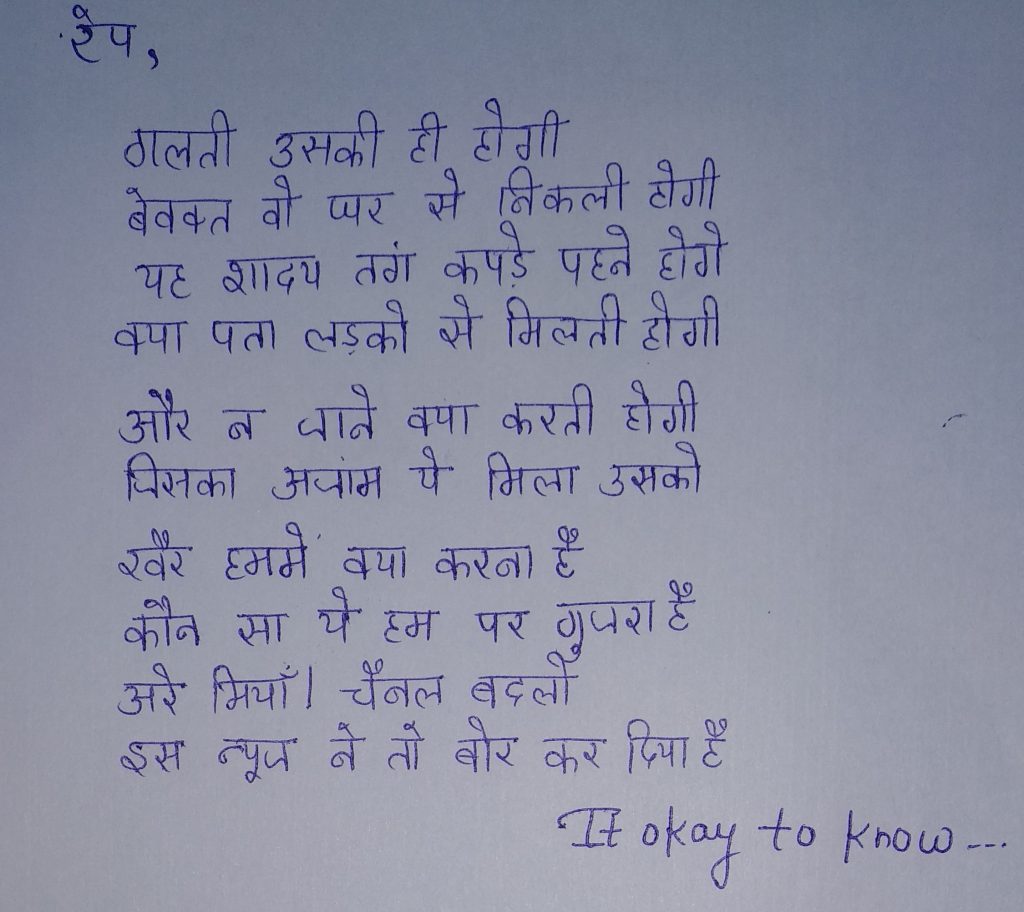 रेप,
गलती उसकी ही होगी
बेवक्त वो घर से निकली होगी
यह शादय तगं कपड़े पहने होगे
क्या पता लड़को से मिलती होगी
और न जाने क्या करती होगी
जिसका अजांम ये मिला उसको
खैर हममें क्या करना है
कौन सा ये हम पर गुजरा है
अरे मियाँ। चैनल बदलो
इस न्यूज ने तो बोर कर दिया है
It okay to know---